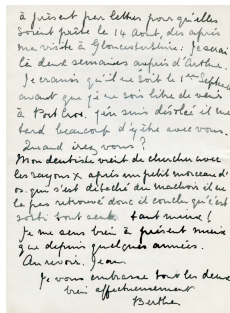 à présent par lettre pour qu'elles
soient prête le 14 Aout, dès après
ma visite à Gloucestershire. Je serai
là deux semaines auprès d'Arthur.
Je crains qu'il ne soit le 1er Septembre
avant que je ne sois libre de venir
à Port Cros. J'en suis désolée il me
tard beaucoup d'y être avec vous.
Quand irez vous?
Mon dentiste vient de chercher avec
les rayons x après un petit morceau d'
os qui s'est détaché du machoir il ne
l'a pas retrouvé donc il conclu qu'il est
sorti tout seul. tant mieux!
Je me sens bien à présent mieux
que depuis quelques années.
Au revoir. Jean
Je vous embrasse tous les deux
bien affectueusement
Berthe